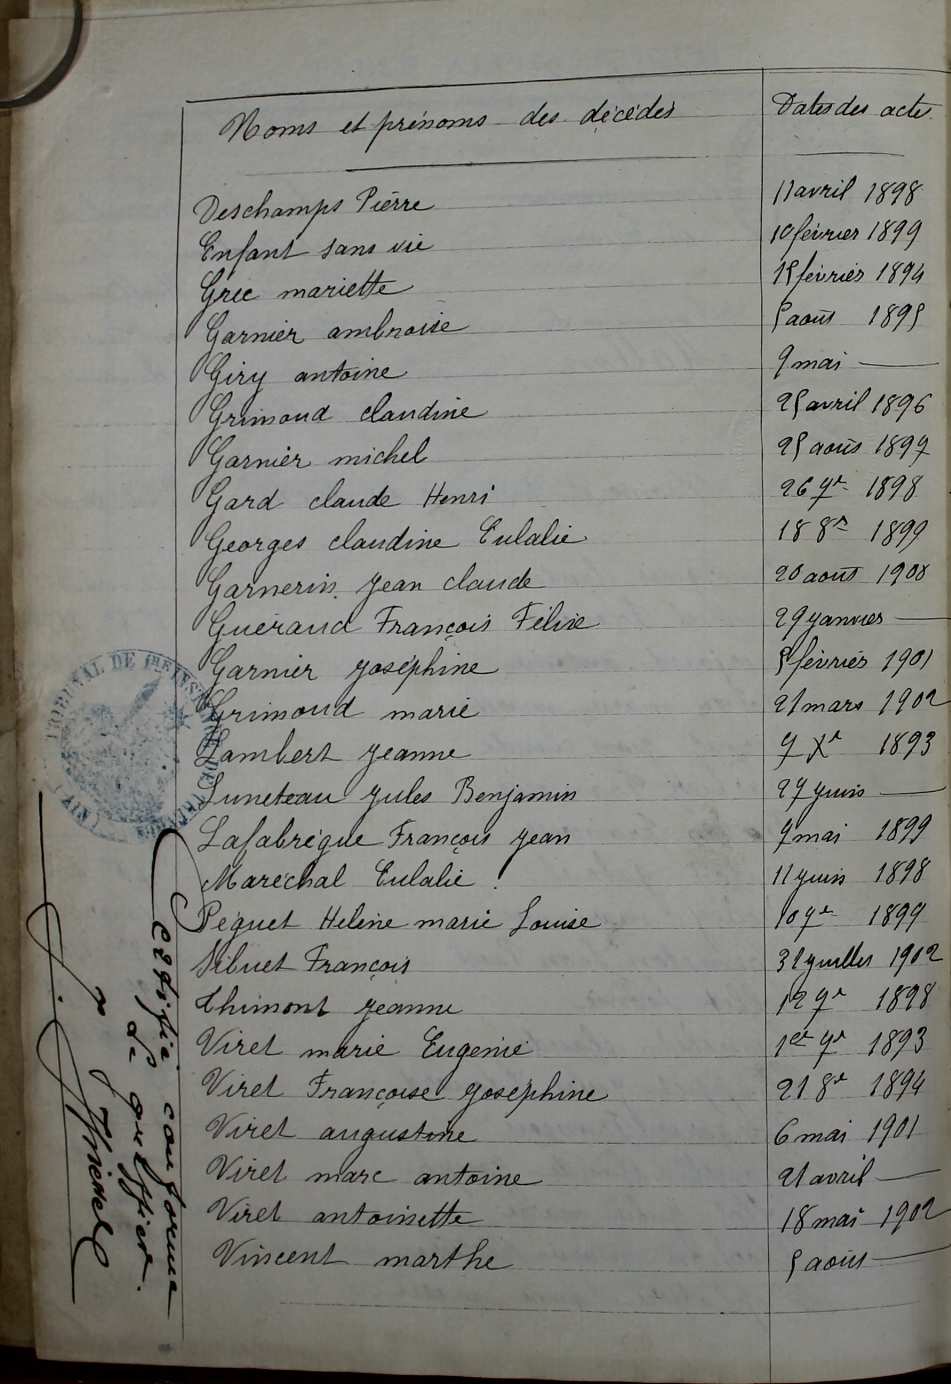 Noms et prénoms des décédés Dates des actes
Deschamps Pierre 11 avril 1898
Enfant sans vie 10 février 1899
Gree mariette 15 février 1894
Garnier ambroise 5 août 1895
Giry antoine 9 mai —
Grimoud claudine 25 avril 1896
Garnier michel 25 août 1897
Gard claude Henri 26 7re 1898
Georges claudine Eulalie 18 8re 1899
Garnerin Jean claude 20 août 1900
Gueraud François Félix 29 janvier —
Garnier Joséphine 5 février 1901
Grimoud marie 21 mars 1902
Lambert Jeanne 7 Xe 1893
Luneteau Jules Benjamin 27 juin —
Lafabrègue François Jean 7 mai 1899
Maréchal Eulalie 11 juin 1898
Péguet Helene marie Louise 10 7re 1899
Sibuet François 31 juillet 1902
Thimont Jeanne 12 7re 1898
Viret marie Eugenie 1er 7re 1893
Viret Françoise Joséphine 21 8re 1894
Viret augustine 6 mai 1901
Viret marc antoine 21 avril —
Viret antoinette 18 mai 1902
Vincent marthe 5 août —
TRIBUNAL DE 1RE INSTANCE
(AIN)
Certifié conforme
Le greffier.